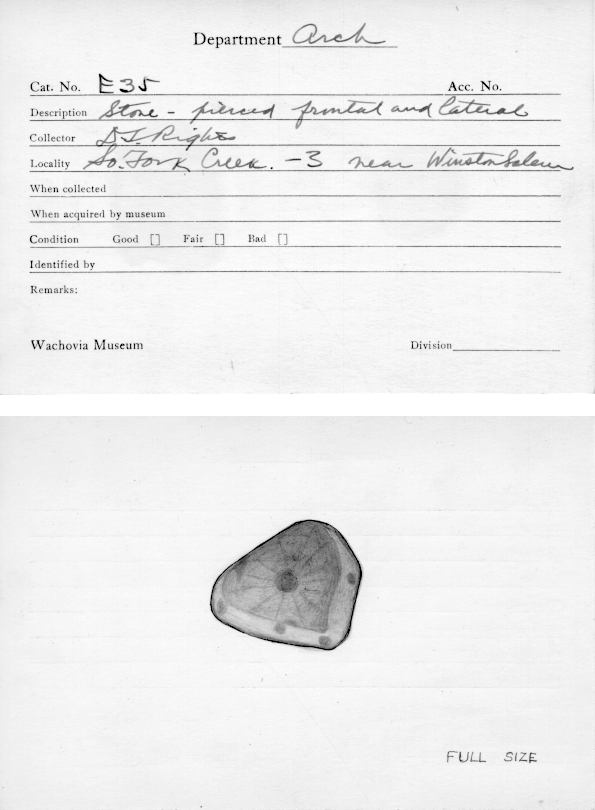 Department Arch
Cat. No. E35 Acc. No.
Description Stone - pierced frontal and lateral
Collector D.L. Rights
Locality So. Fork Creek. - 3 near Winston Salem
When collected
When acquired by museum
Condition Good [] Fair [] Bad []
Identified by
Remarks:
Wachovia Museum Division
FULL SIZE